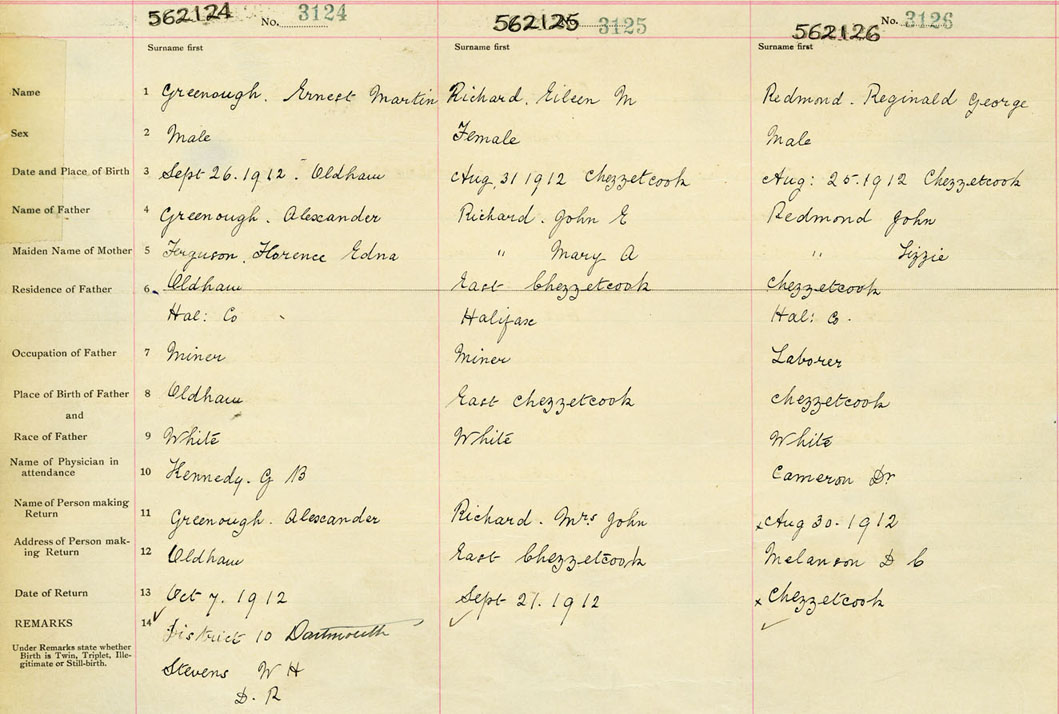 562124 No. 3124 562125 3125 562126 No. 3126
Surname first Surname first Surname first
Name 1 Greenough. Ernest Martin Richard. Eileen M Redmond. Reginald George
Sex 2 Male Female Male
Date and Place of Birth 3 Sept 26. 1912. Oldham Aug, 31 1912 Chezzetcook Aug: 25. 1912 Chezzetcook
Name of Father 4 Greenough. Alexander Richard. John E Redmond John
Maiden Name of Mother 5 Ferguson. Florence Edna " Mary A " Lizzie
Residence of Father 6 Oldham East Chezzetcook Chezzetcook
Hal: Co Halifax Hal: Co.
Occupation of Father 7 Miner Miner Laborer
Place of Birth of Father 8 Oldham East Chezzetcook Chezzetcook
and
Race of Father 9 White White White
Name of Physician in
attendance 10 Kennedy. G B Cameron Dr
Name of Person making
Return 11 Greenough. Alexander Richard. Mrs John x Aug 30. 1912
Address of Person mak-
ing Return 12 Oldham East Chezzetcook Melanson D C
Date of Return 13 Oct 7. 1912 Sept 27. 1912 x Chezzetcook
REMARKS 14 District 10 Dartmouth
Under Remarks state whether
Birth is Twin, Triplet, Ille-
gitimate or Still-birth.
Stevens W H
D. R